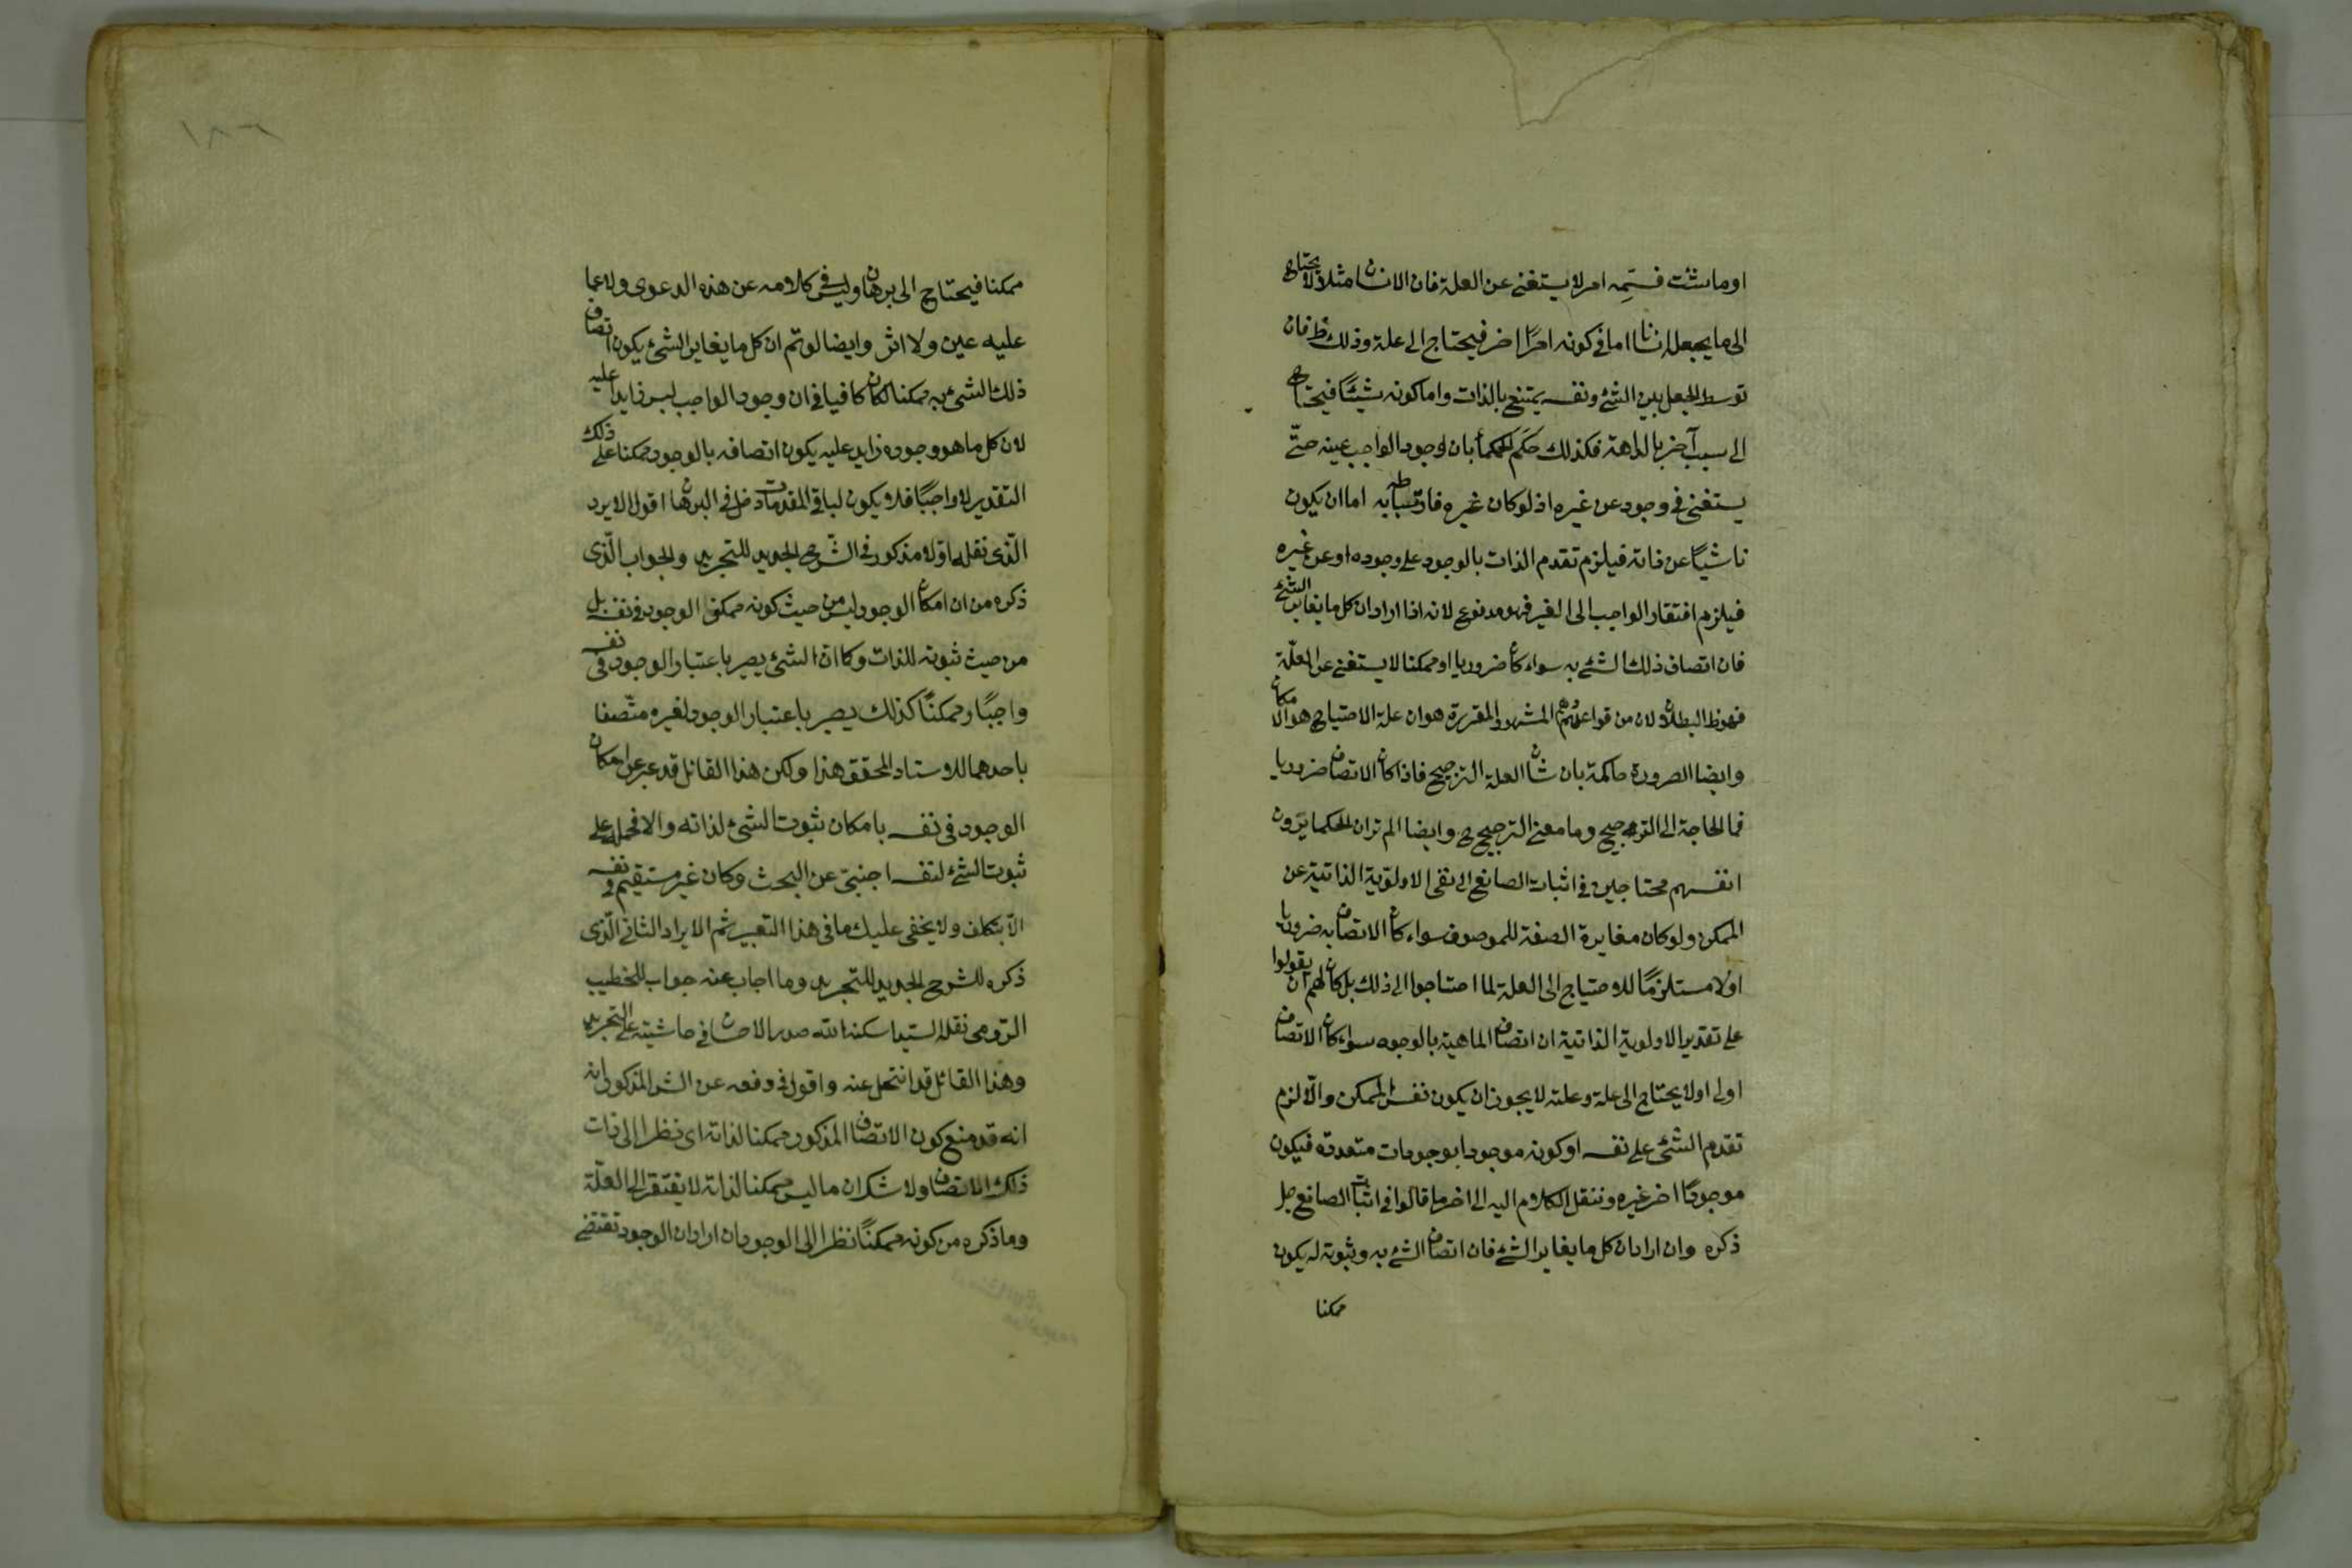 اوما شئت فسمه امر لا يستغنى عن العلة فان الانسان مثلا لا يحتاج
الى ما يجعله انسانا اما فى كونه امرا اخر فيحتاج الى علة وذلك ظ فان
توسط الجعل بين الشئ ونفسه يمتنع بالذات واما كونه شيئا فيحتاج
الى سبب آخر بالداهة فكذلك حكم الحكمأ بان وجود الواجب عينه حتّى
يستغنى فى وجوده عن غيره اذ لو كان غيره فارتباطه به اما ان يكون
ناشيًا عن ذاته فيلزم تقدم الذات بالوجود على وجوده او عن غيره
فيلزم افتقار الواجب الى الغير فهو مدفوع لانه اذا اراد ان كل ما يغاير الشئ
فان اتصاف ذلك الشئ به سواء كان ضروريا او ممكنا لا يستغنى عن العلّة
فهو ظ البطلان لان من قواعدهم المشهورة المقررة هو ان علة الاحتياج هو الامكان
وايضا الضرورة حاكمة بان شان العلة الترجيح فاذا كان الاتصاف ضروريا
فما الحاجة الى الترجيح وما معنى الترجيح ح وايضا الم تر ان الحكما يرون
انفسهم محتاجين فى اثبات الصانع الى نفى الاولوية الذاتية عن
الممكن ولو كان مغايرة الصفة للموصوف سواء كان الاتصاف به ضروريا
اولا مستلزمًا للاحتياج الى العلة لما احتاجوا الى ذلك بل كان لهم ان يقولوا
على تقدير الاولوية الذاتية ان اتصاف الماهية بالوجود سواء كان الاتصاف
اولى اولا يحتاج الى علة وعلته لا يجوز ان يكون نفس الممكن والّا لزم
تقدم الشئ على نفسه او كونه موجودا بوجودات متعددة فيكون
موجودًا اخر غيره وننقل الكلام اليه الى اخر ما قالوا فى اثبات الصانع جل
ذكره وان اراد ان كل ما يغاير الشئ فان اتصاف الشئ به وثبوته له يكون
ممكنا
١٨٦
ممكنا فيحتاج الى برهان وليس فى كلامه عن هذه الدعوى ولا عما
عليه عين ولا اثر وايضا لو تم ان كل ما يغاير الشئ يكون اتصاف
ذلك الشئ به ممكنا لكان كافيا فى ان وجود الواجب ليس زايدا عليه
لان كل ما هو وجوده زايد عليه يكون اتصافه بالوجود ممكنا على ذلك
التقدير لا واجبًا فلا يكون لباقى المقدمات دخل فى البرهان اقول الايراد
الّذى نقله اولا مذكور فى الشّرح الجديد للتجريد والجواب الّذى
ذكره من ان امكان الوجود ليس من حيث كونه ممكن الوجود فى نفسه بل
من حيث ثبوته للذات وكما انّ الشئ يصير باعتبار الوجود فى نفسه
واجبًا وممكنًا كذلك يصير باعتبار الوجود لغيره متّصفا
باحدهما للاستاد المحقق هذا ولكن هذا القائل قد عبر عن امكان
الوجود فى نفسه بامكان ثبوت الشئ لذاته والا فحمله على
ثبوت الشئ لنفسه اجنبىّ عن البحث وكان غير مستقيم فى نفسه
الّا بتكلف ولا يخفى عليك ما فى هذا التعبير ثم الايراد الثانى الّذى
ذكره للشرح الجديد للتجريد وما اجاب عنه جواب للخطيب
الرّومى نقله السّيد اسكنه الله صدر الاحسان فى حاشيته على التجريد
وهذا القائل قد انتحل عنه واقول فى دفعه عن الشر المذكور انه
انه قد منع كون الاتصاف المذكور ممكنا لذاته اى نظرا الى ذات
ذلك الاتصاف ولا شك ان ما ليس ممكنا لذاته لا يفتقر الى العلّة
وما ذكره من كونه ممكنًا نظرا الى الوجود ان اراد ان الوجود تقتضى